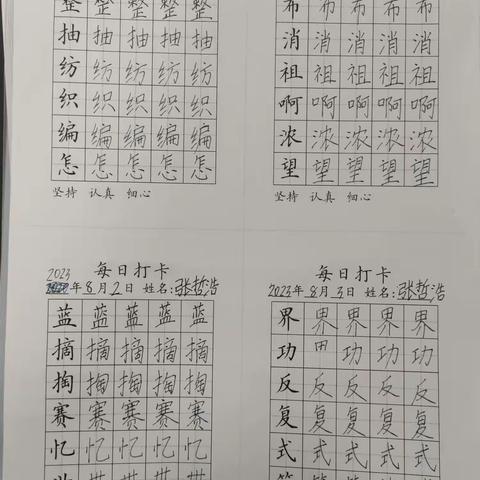 整 整 整 整 整
抽 抽 抽 抽 抽
纺 纺 纺 纺 纺
织 织 织 织 织
编 编 编 编 编
怎 怎 怎 怎 怎
坚持 认真 细心
布 布 布 布 布
消 消 消 消 消
祖 祖 祖 祖 祖
啊 啊 啊 啊 啊
浓 浓 浓 浓 浓
望 望 望 望 望
坚持 认真 细心
每日打卡
2023年8月2日 姓名:张哲浩
蓝 蓝 蓝 蓝 蓝
摘 摘 摘 摘 摘
掏 掏 掏 掏 掏
赛 赛 赛 赛 赛
忆 忆 忆 忆 忆
每日打卡
2023年8月3日 姓名:张哲浩
界 界 界 界 界
功 功 功 功
反 反 反 反 反
复 复 复 复 复
式 式 式 式 式